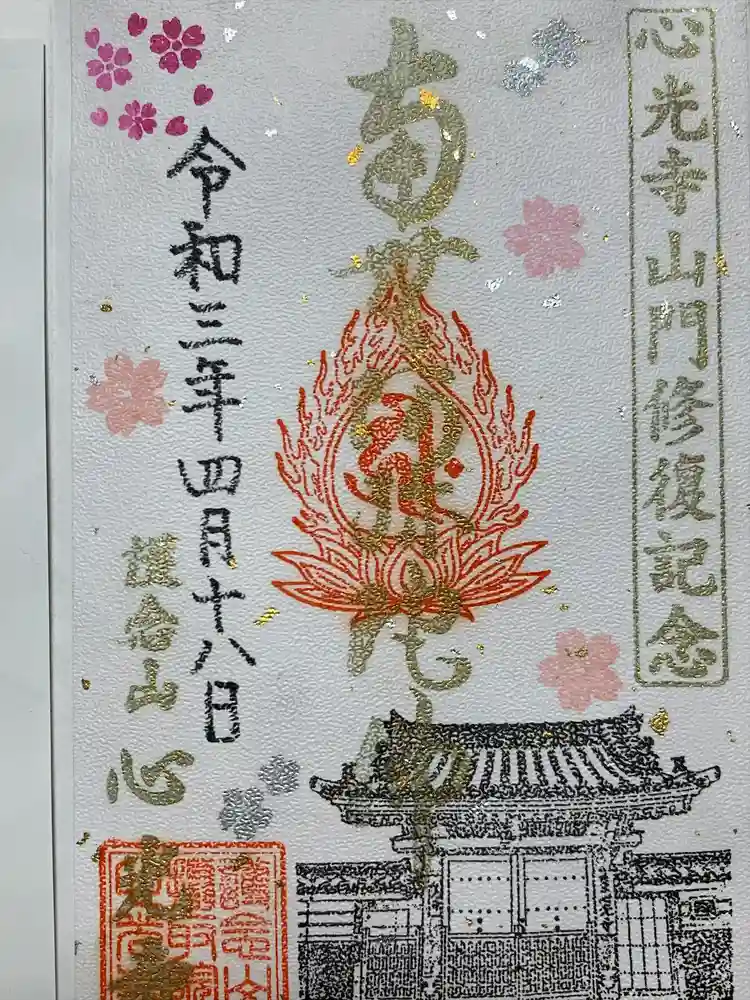 心光寺山門修復記念
南無釈迦牟尼仏
令和三年四月十八日
護念山
心光寺